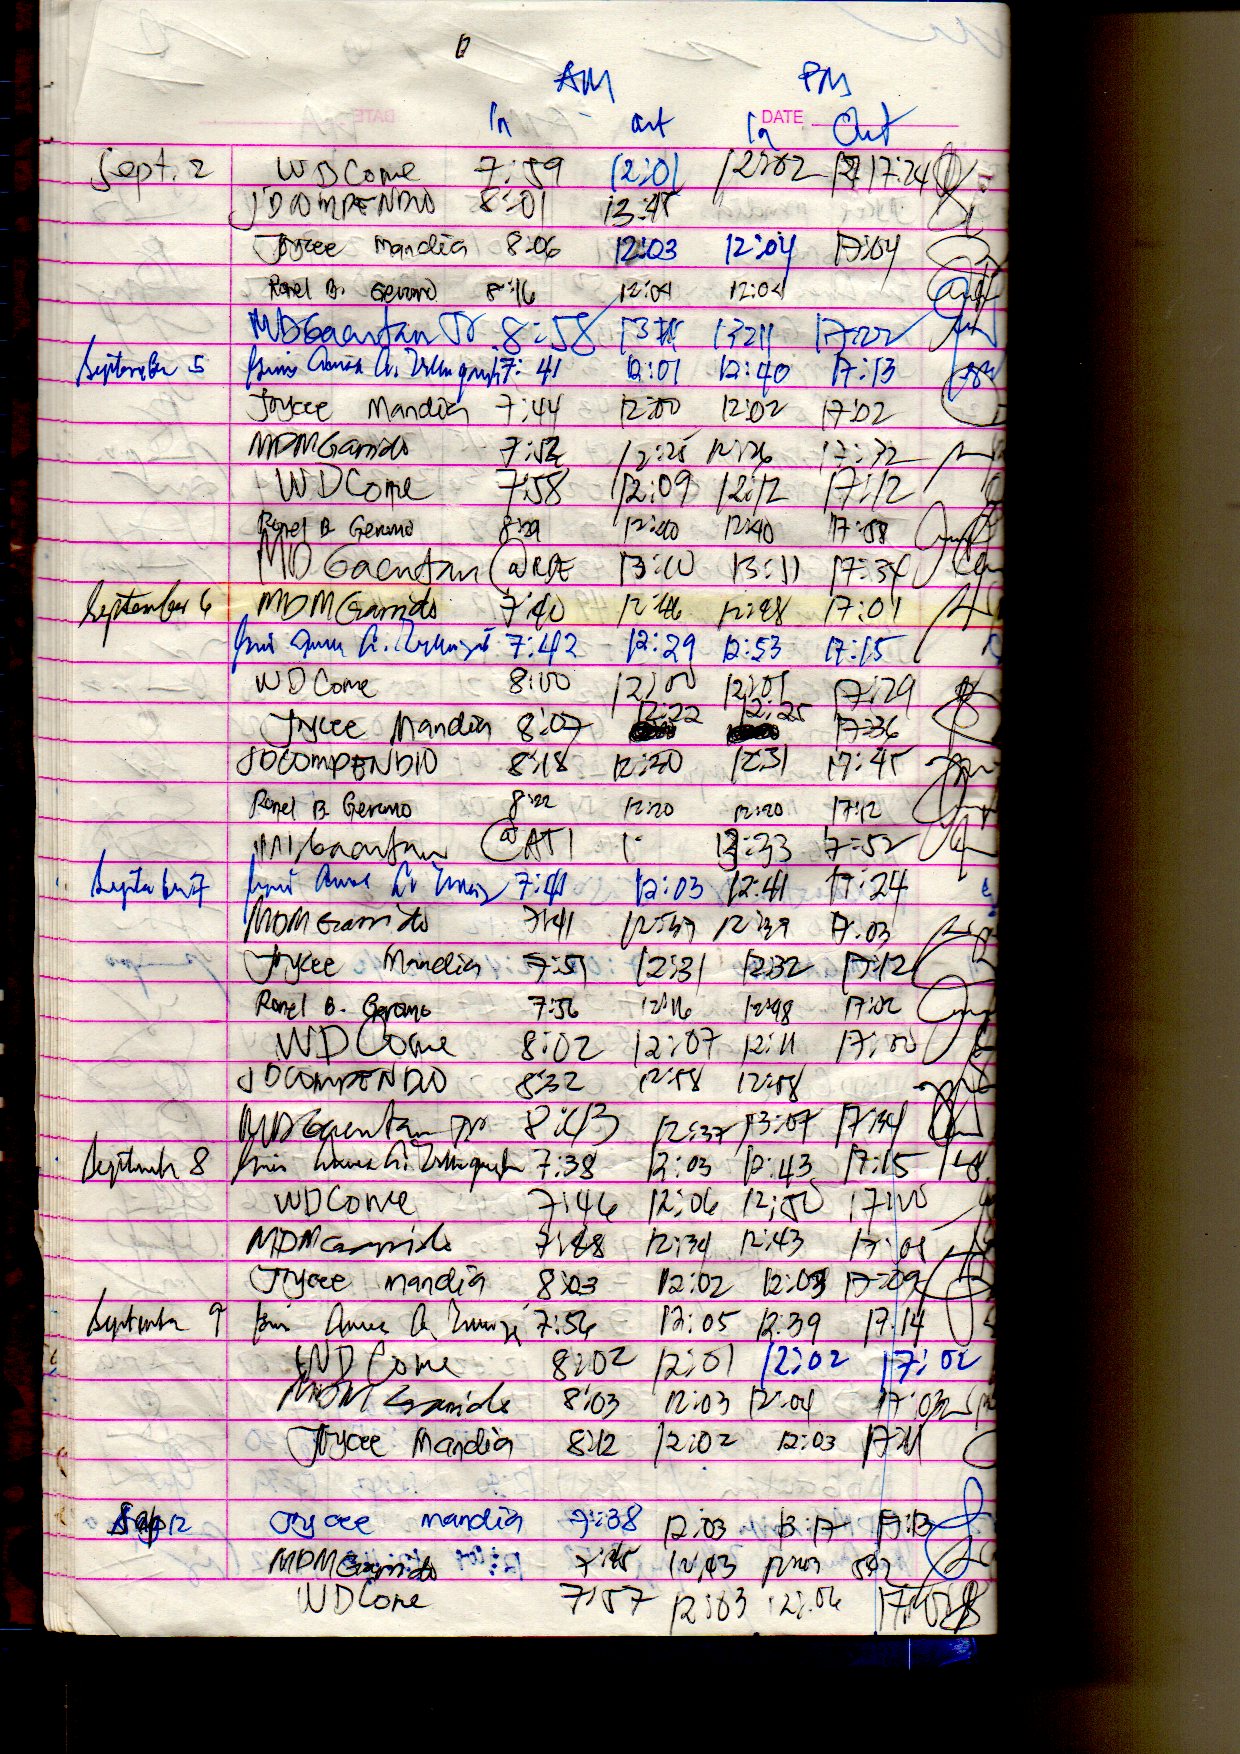 AM PM
In out In Out
DATE
Sept. 2 WDCome 7:59 12:01 12:02 17:24
JDCOMPENDIO 8:01 13:45
Joycee Mandia 8:06 12:03 12:04 17:04
Ronel B. Gerano 8:16 12:04 12:04
MDGacutan Jr 8:58 13:11 17:22
September 5 7:41 12:01 12:40 17:13
Joycee Mandia 7:44 12:00 12:02 17:02
MDMGarrido 7:52 12:25 12:26 17:32
WDCome 7:58 12:09 12:12 17:12
Ronel B Gerano 8:29 12:40 12:40 17:58
MDGacutan @RDE 13:10 13:11 17:34
September 6 MDMGarrido 7:40 12:46 12:48 17:01
7:42 12:29 12:53 17:15
WDCome 8:00 12:00 12:01 17:29
Joycee Mandia 8:07 12:22 12:25 17:36
JDCOMPENDIO 8:18 12:20 12:31 17:45
Ronel B Gerano 8:22 12:20 12:20 17:12
MDGacutan @ATI 13:33 7:52
7:41 12:03 12:41 17:24
MDMGarrido 7:41 12:37 12:39 17:03
Joycee Mandia 7:51 12:31 12:32 17:12
Ronel B. Gerano 7:56 12:16 12:48 17:02
WDCome 8:02 12:07 12:11 17:00
JDCOMPENDIO 8:32 12:58 12:58
MDGacutan Jr 8:43 12:37 13:07 17:34
September 8 7:38 12:03 12:43 17:15
WDCome 7:46 12:06 12:50 17:00
MDMGarrido 7:48 12:34 12:43
Joycee Mandia 8:03 12:02 12:03 17:09
September 9 7:56 12:05 12:39 17:14
WDCome 8:02 12:01 12:02 17:02
MDMGarrido 8:03 12:03 12:04 17:03
Joycee Mandia 8:12 12:02 12:03 17:11
Sep 12 Joycee Mandia 7:38 12:03 13:17 17:13
MDMGarrido 7:45 12:43
WDCome 7:57 12:03 12:06